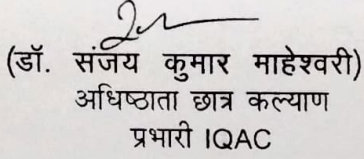 (डॉ. संजय कुमार माहेश्वरी)
अधिष्ठाता छात्र कल्याण
प्रभारी IQAC